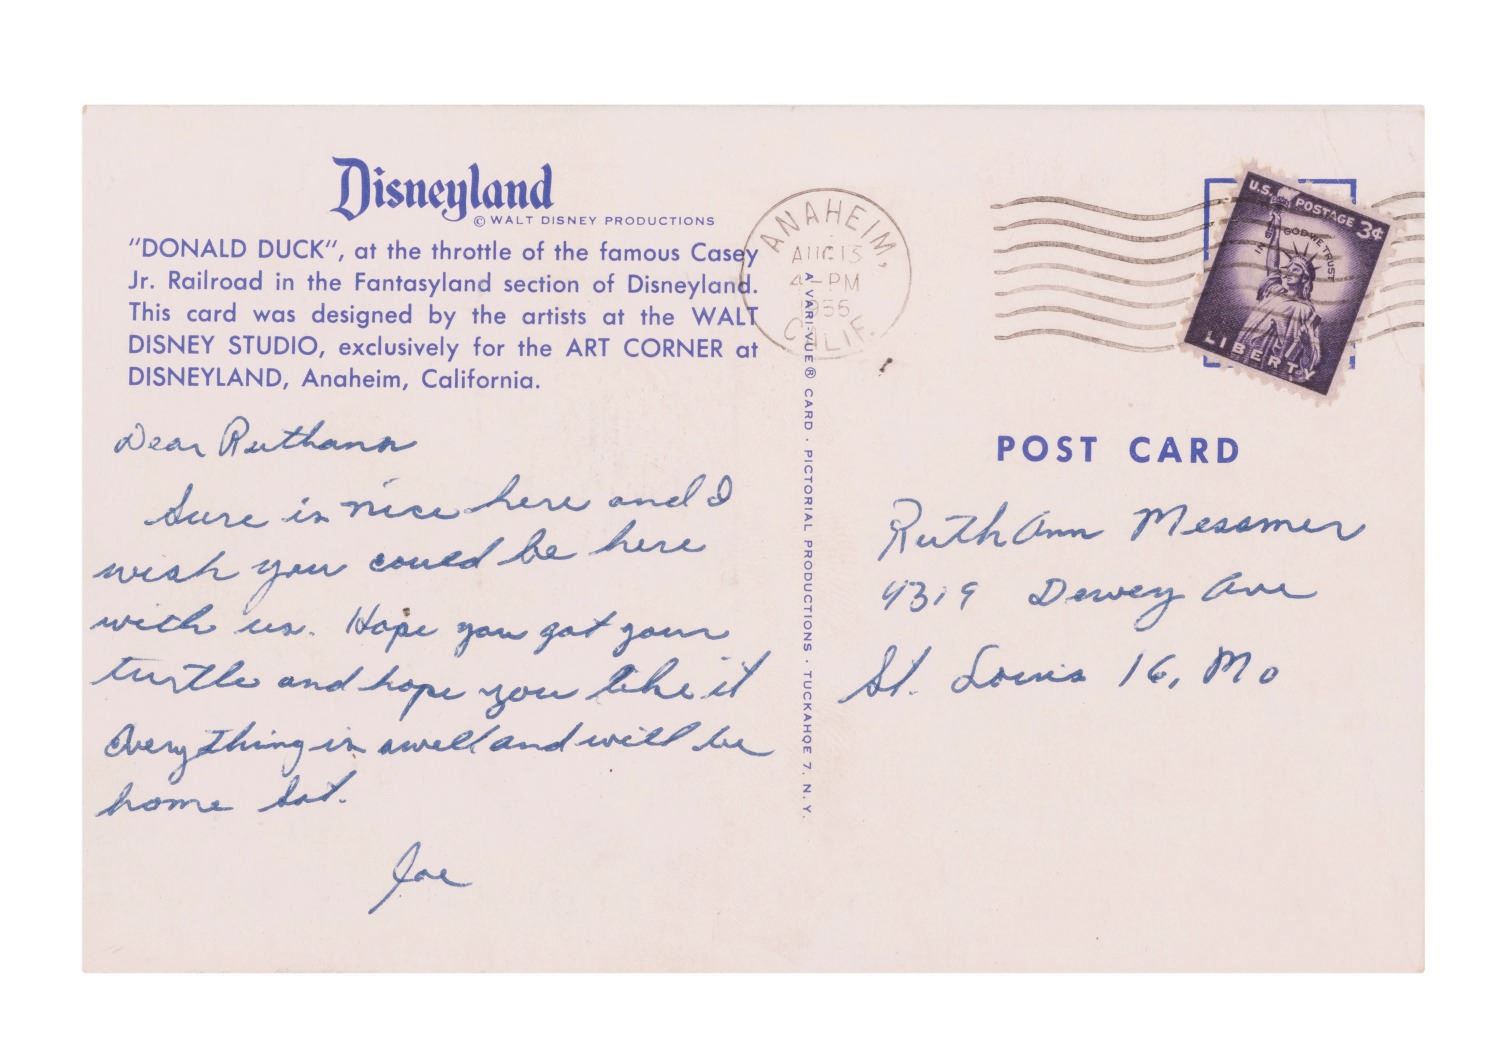 Disneyland
© WALT DISNEY PRODUCTIONS
"DONALD DUCK", at the throttle of the famous Casey
Jr. Railroad in the Fantasyland section of Disneyland.
This card was designed by the artists at the WALT
DISNEY STUDIO, exclusively for the ART CORNER at
DISNEYLAND, Anaheim, California.
Dear Ruthann
Sure is nice here and I
wish you could be here
with us. Hope you got your
turtle and hope you like it
Everything is swell and will be
home Sat.
Joe
A VARI-VUE® CARD · PICTORIAL PRODUCTIONS · TUCKAHOE 7, N.Y.
ANAHEIM,
AUG 13
4-PM
CALIF.
U.S. POSTAGE 3¢
IN GOD WE TRUST
LIBERTY
POST CARD
RuthAnn Messmer
4319 Dewey Ave
St. Louis 16, Mo